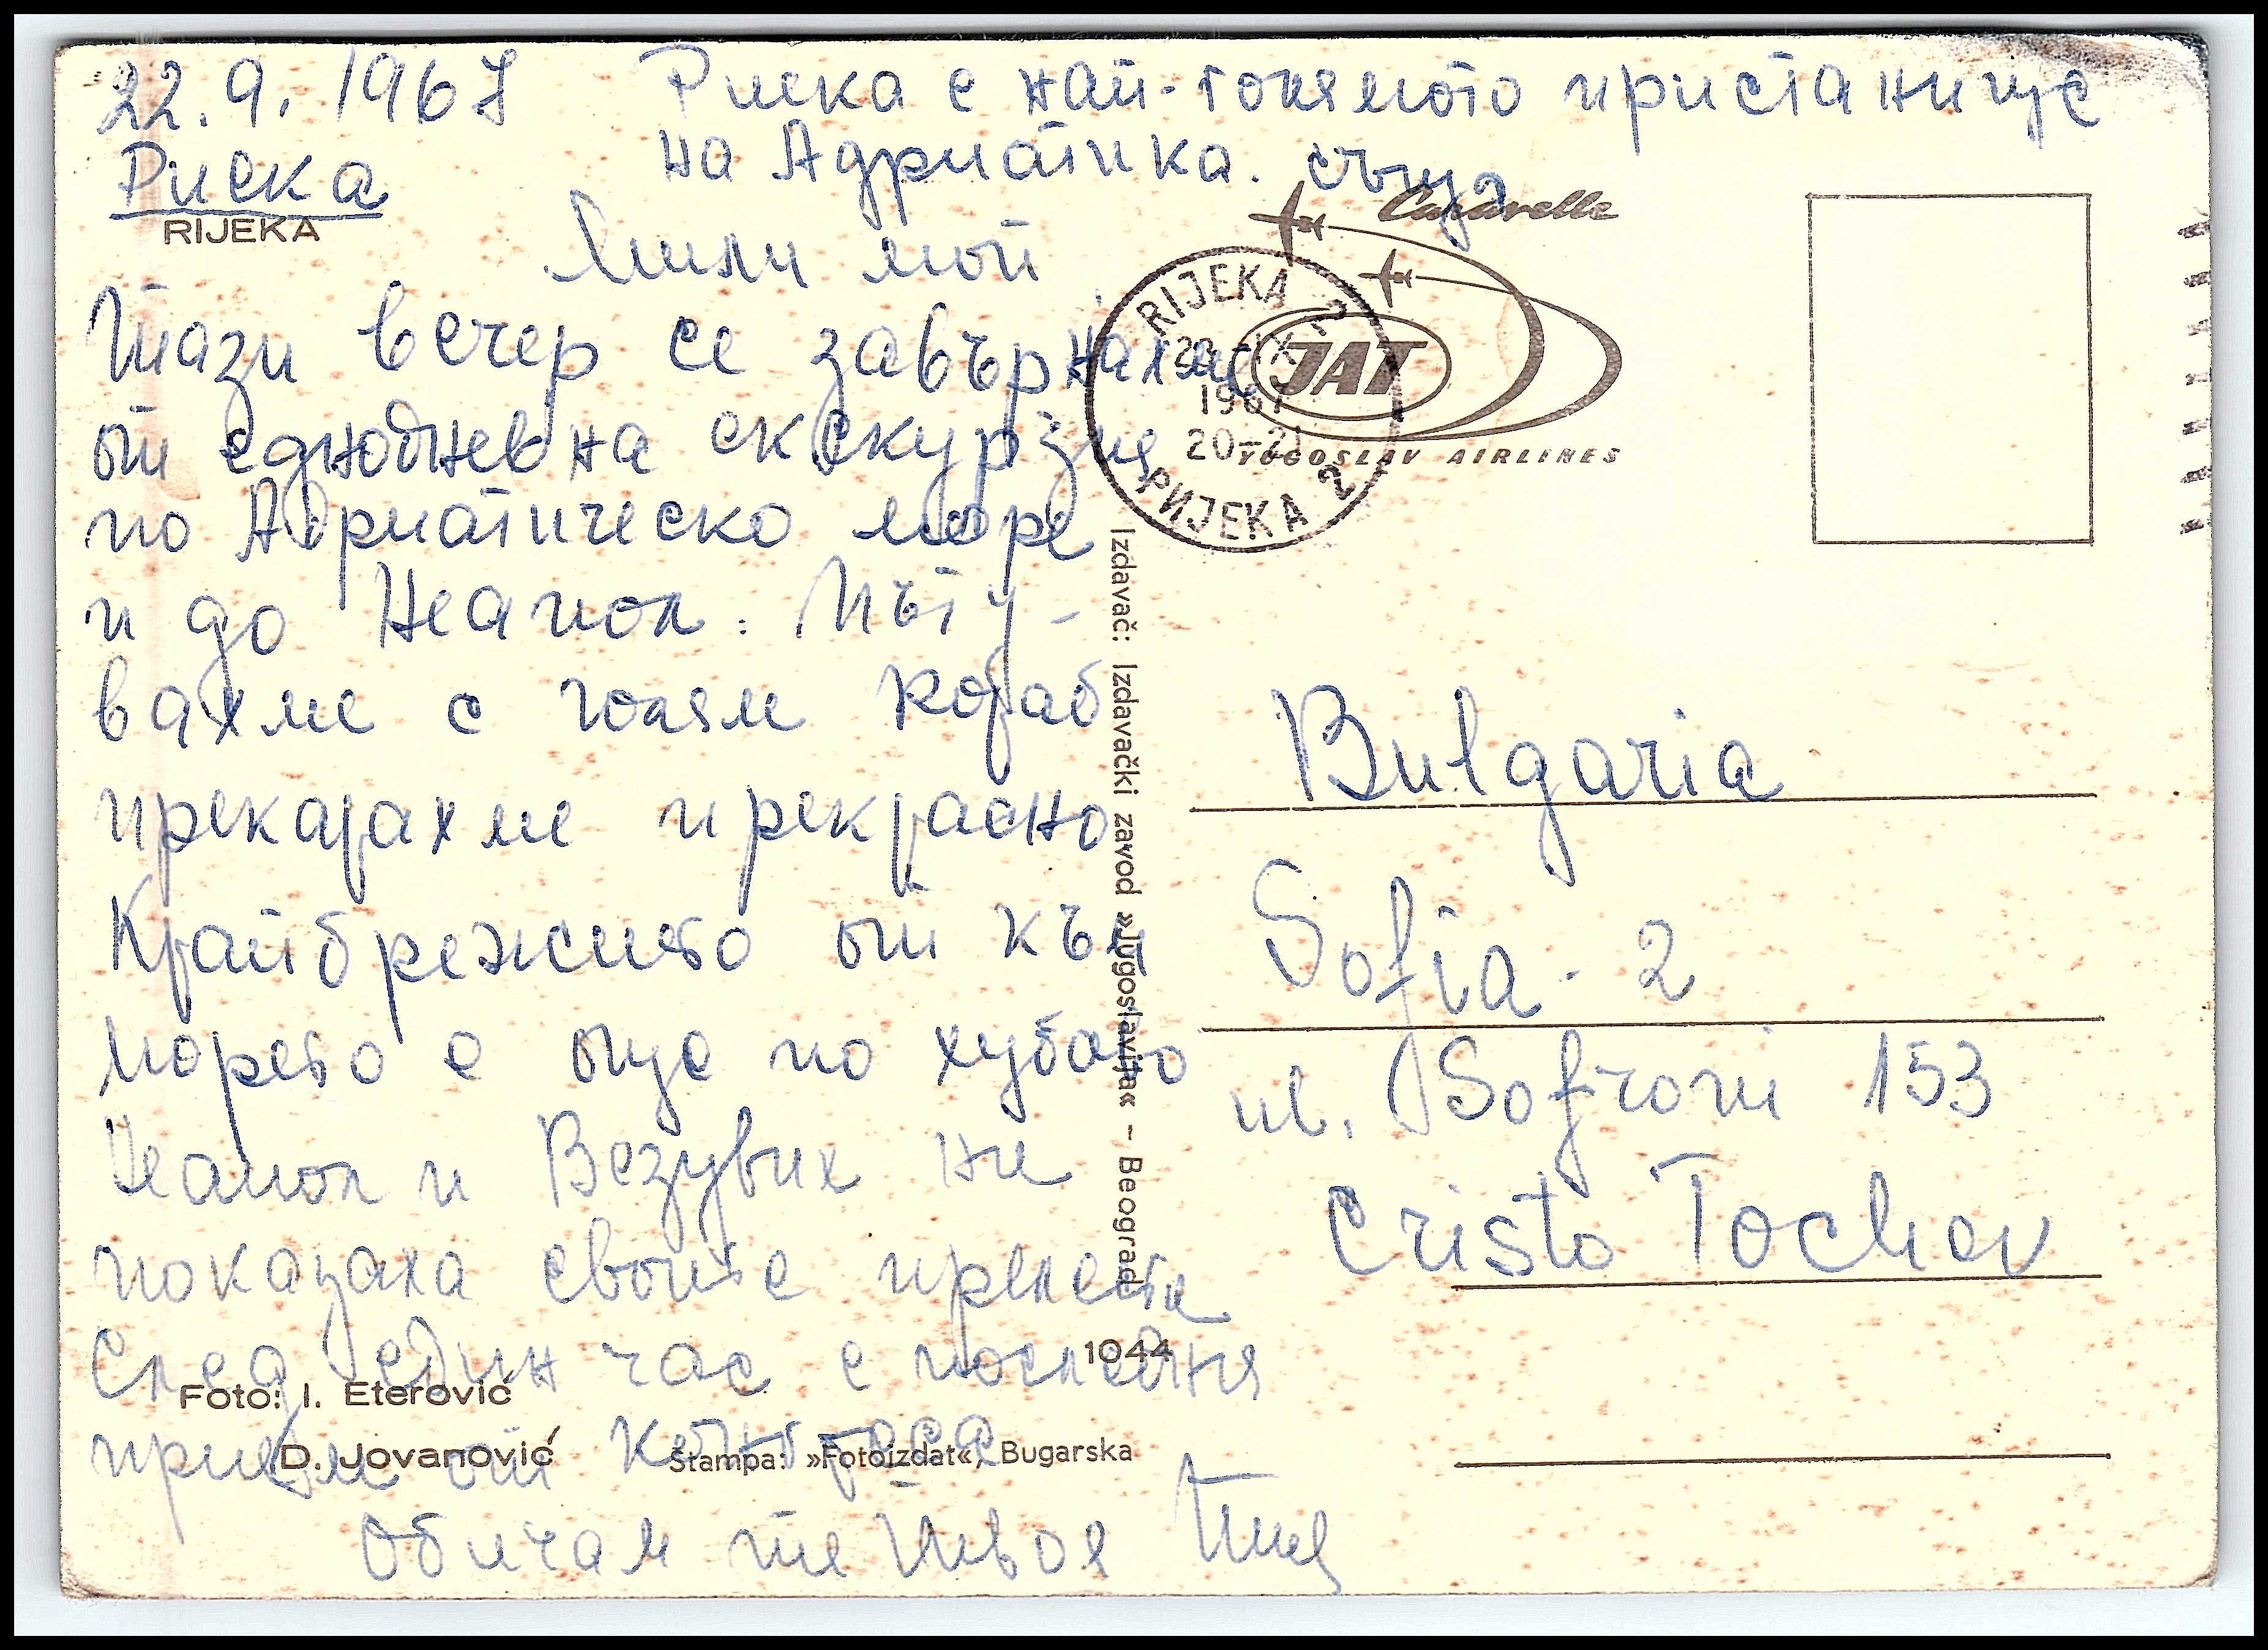 22.9.1967
Риека
RIJEKA
Риека е най-голямото пристанище
на Адриатика. също
Мили мой
Тази вечер се завърнахме
от еднодневна екскурзия
по Адриатическо море
и до Неапол. Пъту-
вахме с голям кораб
прекарахме прекрасно
Крайбрежието от към
морето е още по хубаво
Неапол и Везувий ни
показаха своите прелести
След един час е последния
прием от конгреса
Обичам те Твоя
Caravelle
JAT
YUGOSLAV AIRLINES
RIJEKA 2
22. IX
1967
20-21
РИЈЕКА 2
Izdavač: Izdavački zavod »Jugoslavija« – Beograd
Bulgaria
Sofia - 2
ul. Sofroni 153
Cristo Tochev
1044
Foto: I. Eterović
D. Jovanović
Štampa: »Fotoizdat«, Bugarska